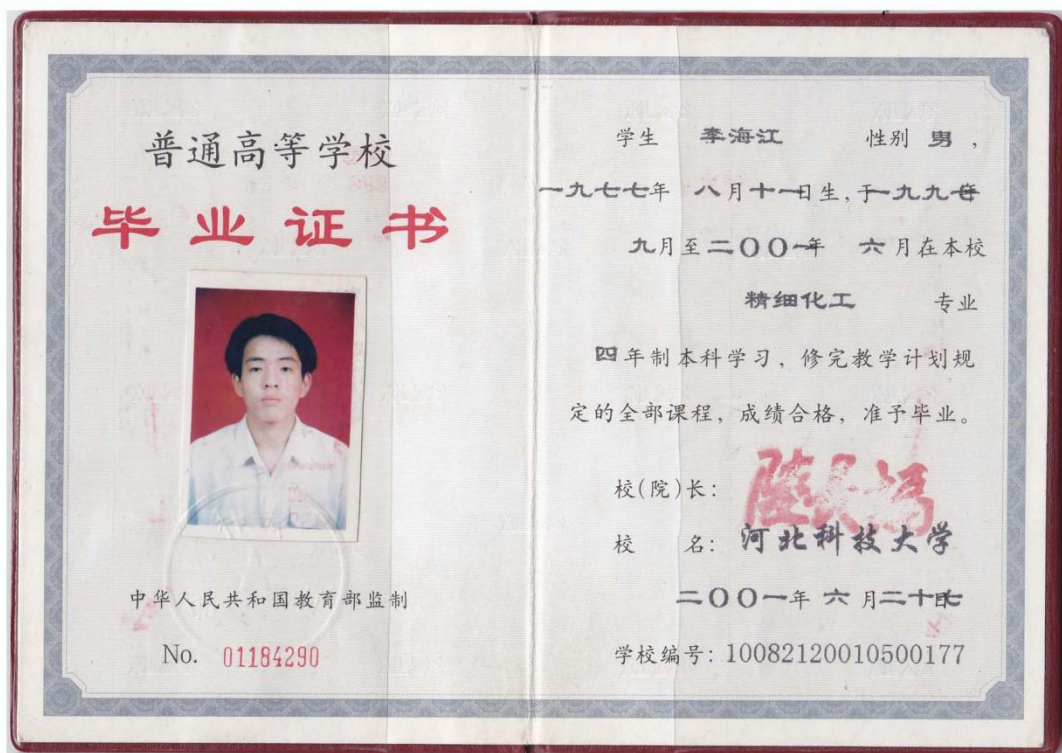 普通高等学校
毕业证书
中华人民共和国教育部监制
No. 01184290
学生 李海江 性别 男，
一九七七年 八月十一日生，于一九九七年
九月至二〇〇一年 六月在本校
精细化工 专业
四年制本科学习，修完教学计划规
定的全部课程，成绩合格，准予毕业。
校(院)长：
校 名：河北科技大学
二〇〇一年 六月二十七日
学校编号：10082120010500177